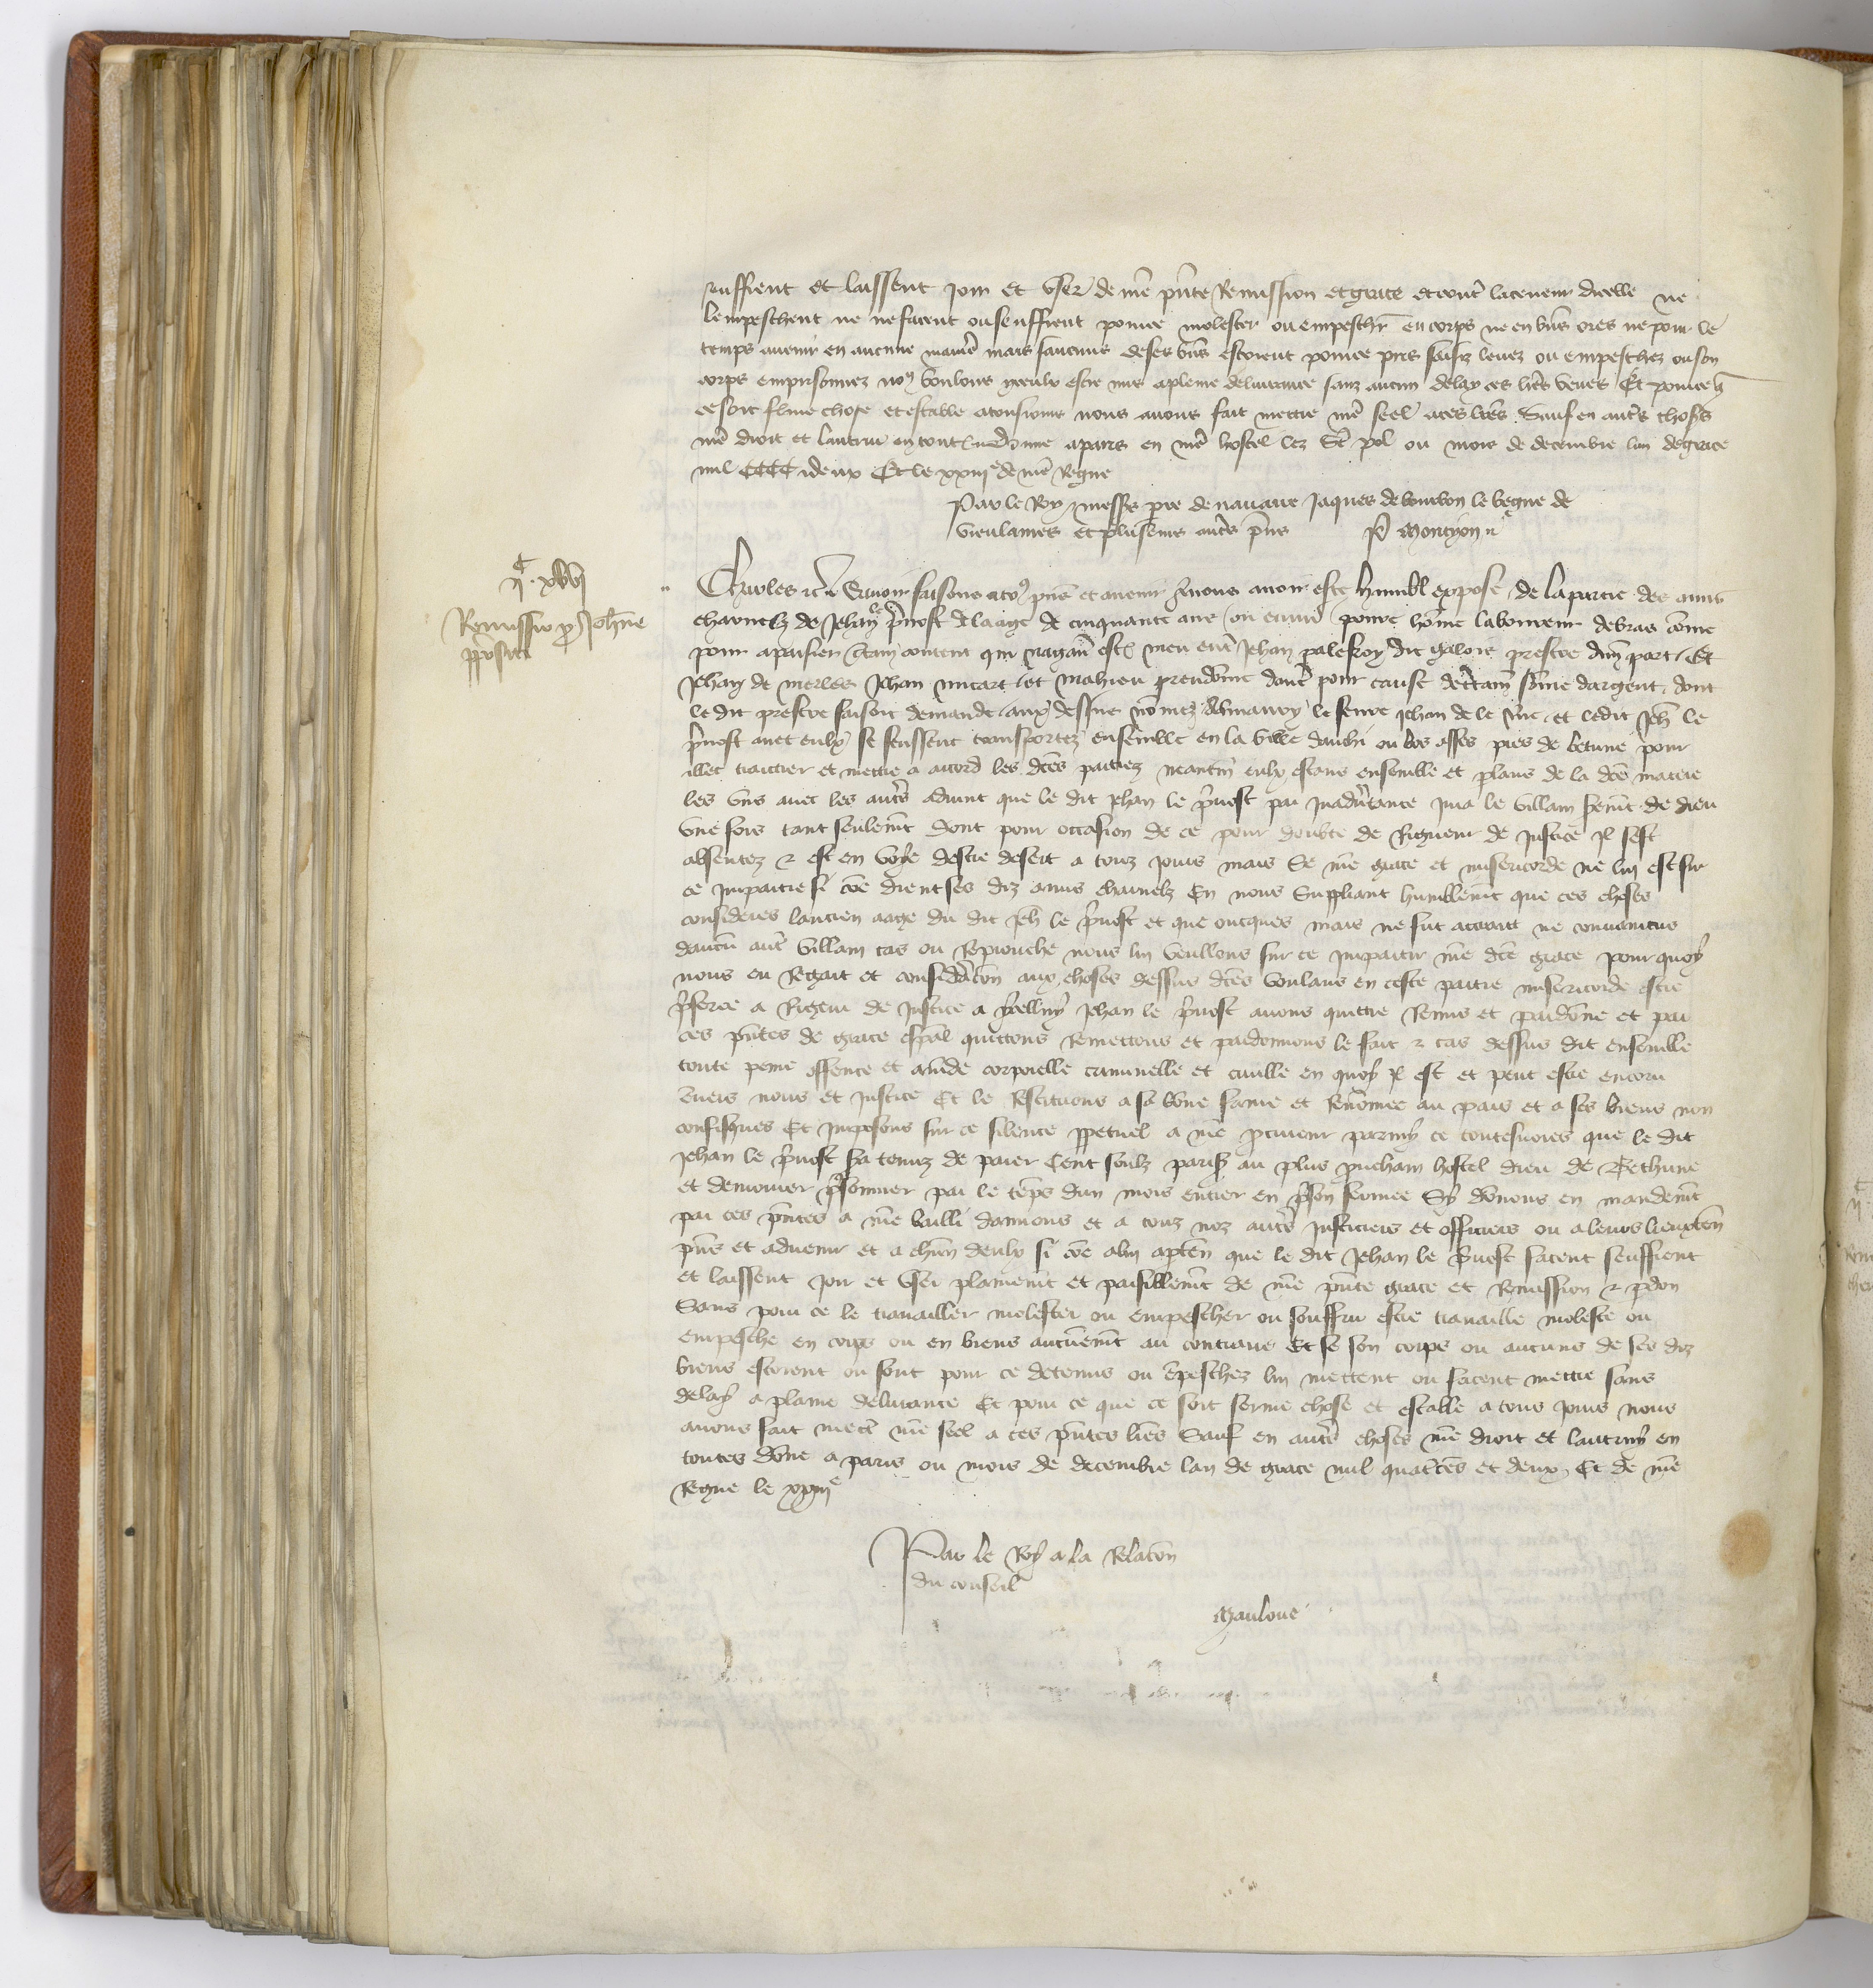 suffrent et laissent joir et user de nre pnte Remission et grace et contre la teneur dicelle ne
lempeschent ne ne facent ou seuffrent pour ce molester ou empeschr en corps ne en biens ores ne pour le
temps avenir en aucune maniere mais saucuns deses biens estoient pour ce pris saisiz levez ou empeschez ou son
corps emprisonnez nous voulons yceulx estre mis a pleine delivrance sanz aucun delay ces lres veues Et pour ce que
ce soit ferme chose et estable a tousjours nous avons fait mettre nre seel a ces lres Sauf en autres choses
nre droit et lautrui en toutes donne a paris en nre hostel lez St pol ou mois de decembre lan de grace
mil CCCC et deux Et le xxiij e de nre Regne
Par le Roy messrs pre de navarre Jaques de bourbon le begue de
vieulaines et plusieurs autres pns P Montyon
ij C xlvj
Remissio pro Johne
ppositi
Charles etc Savoir faisons a tous pns et avenir Nous avoir este humbl expose de la partie des amis
charnelz de Jehan le pvost de laage de cinquante ans ou environ povre home laboureur de bras come
pour apaisier certain content qui nagaires estoit meu entre Jehan palefroy dit galois prestre dune part Et
Jehan de merles Jehan micart et mahieu preudome dautre pour cause de certaine some dargent dont
le dit prestre faisoit demande aux dessus nomez le fevre Jehan de le et ledit Jeh le
pvost avec eulx se feussent transportez ensemble en la ville dauchi ou bos asses pres de betune pour
illec traictier et mettre a accord les dces parties neantm eulx estans ensemble et plans de la dce matiere
les uns avec les autres advint que le dit Jehan le pvost par inadvertance jura le villain serement de dieu
une fois tant seulement dont pour occasion de ce pour doubte de Rigueur de justice Il sest
absentez & est en voye destre desert a touz jours mais Se nre grace et misericorde ne lui est sur
ce impartie si coe dient ses diz amis charnelz En nous Suppliant humblement que ces choses
considerees lancien aage du dit Jeh le pvost et que oncques mais ne fut attaint ne convaincus
daucun autre villain cas ou Reprouche nous lui veullons sur ce impartir nre dce grace pour quoy
nous eu Regart et consideracon aux choses dessus dces voulans en ceste partie misericorde estre
pferee a Rigeur de Justice a ycelluy Jehan le pvost avons quitte Remis et pardone et par
ces pntes de grace espal quittons Remettons et pardonnons le fait & cas dessus dit ensemble
toute peine offence et amde corporelle criminelle et civille en quoy Il est et peut estre encoru
envers nous et Justice Et le Restituons a sa bone fame et Renomee au pais et a ses biens non
confisques Et Imposons sur ce silence ppetuel a nre pcureur parmy ce toutesvoies que le dit
Jehan le pvost sera tenuz de paier Cent soulz paris au plus prochain hostel dieu de Bethune
et demourer prisonnier par le temps dun mois entier en prison fermee Sy donons en mandemt
par ces pntes a nre bailli damiens et a touz noz autres Justiciers et officiers ou a leurs lieuxten
pns et advenir et a chun deulx si coe a lui apten que le dit Jehan le pvost facent seuffrent
et laissent joir et user plainemt et paisiblemt de nre pnte grace et Remission & pdon
Sans pour ce le travailler molester ou empescher ou souffrir estre travaille moleste ou
empesche en corps ou en biens aucunemt au contraire Et se son corps ou aucuns de ses diz
biens estoient ou sont pour ce detenus ou empeschez lui mettent ou facent mettre sans
delay a plaine delivrance Et pour ce que ce soit ferme chose et estable a tous jours nous
avons fait mectre nre seel a ces pntes lres Sauf en autres choses nre droit et lautruy en
toutes done a paris ou mois de decembre lan de grace mil quatrecens et deux Et de nre
Regne le xxiij e
Par le Roy a la Relacon
du conseil
Mauloue